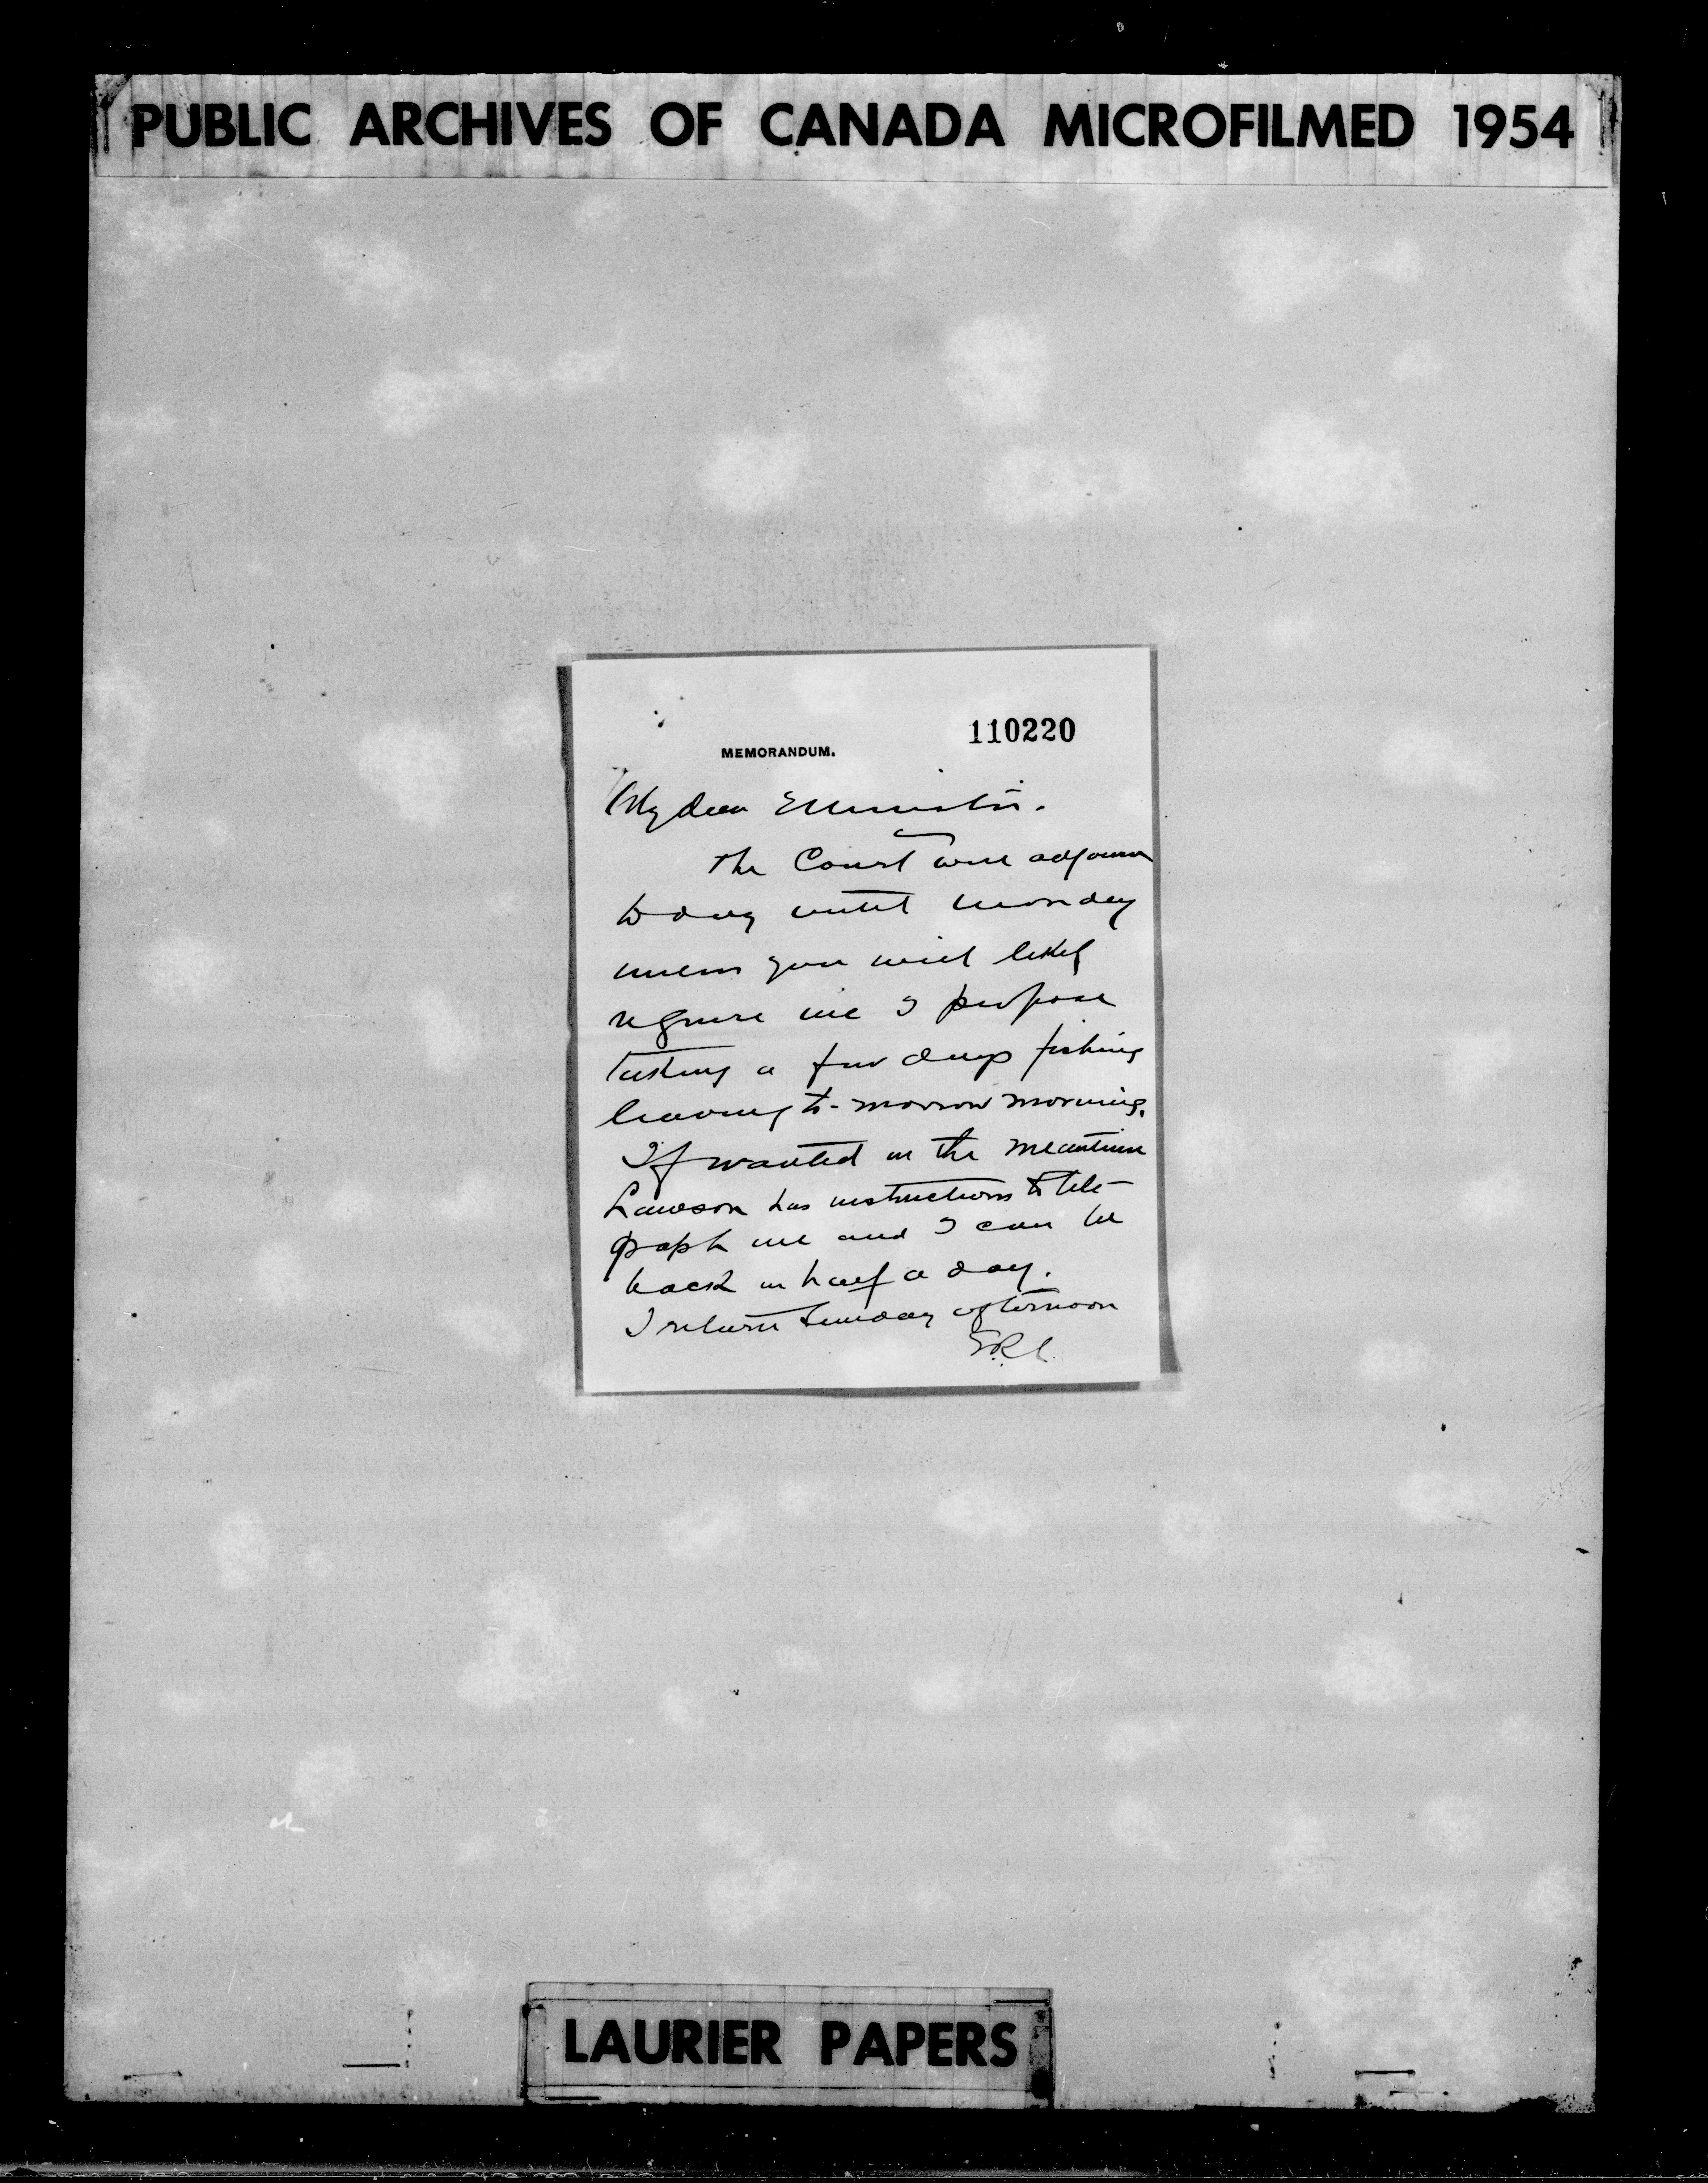 PUBLIC ARCHIVES OF CANADA MICROFILMED 1954
110220
MEMORANDUM.
My dear Minister.
The Court will adjourn
to day until Monday
unless you will likely
require me I propose
taking a few days fishing
leaving to-morrow morning.
If wanted in the meantime
Lawson has instructions to tele-
graph me and I can be
back in half a day.
I return Sunday afternoon
LAURIER PAPERS